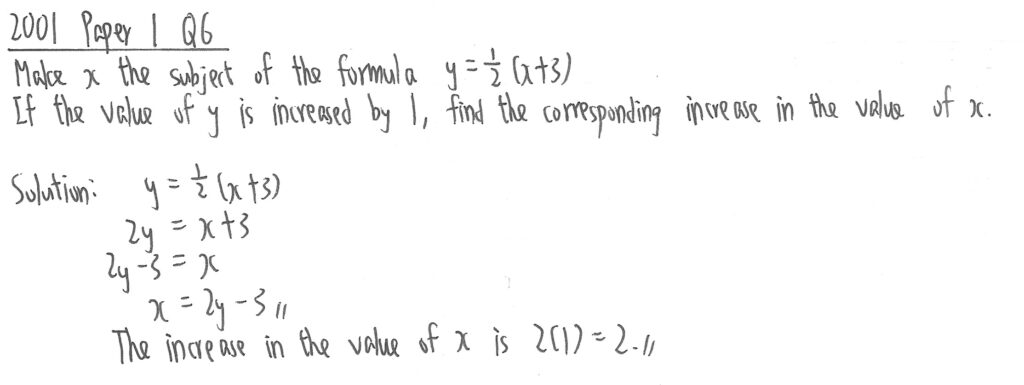 2001 Paper 1 Q6
Make x the subject of the formula y = 1/2 (x+3)
If the value of y is increased by 1, find the corresponding increase in the value of x.
Solution: y = 1/2 (x+3)
2y = x+3
2y-3 = x
x = 2y-3 //
The increase in the value of x is 2(1) = 2. //